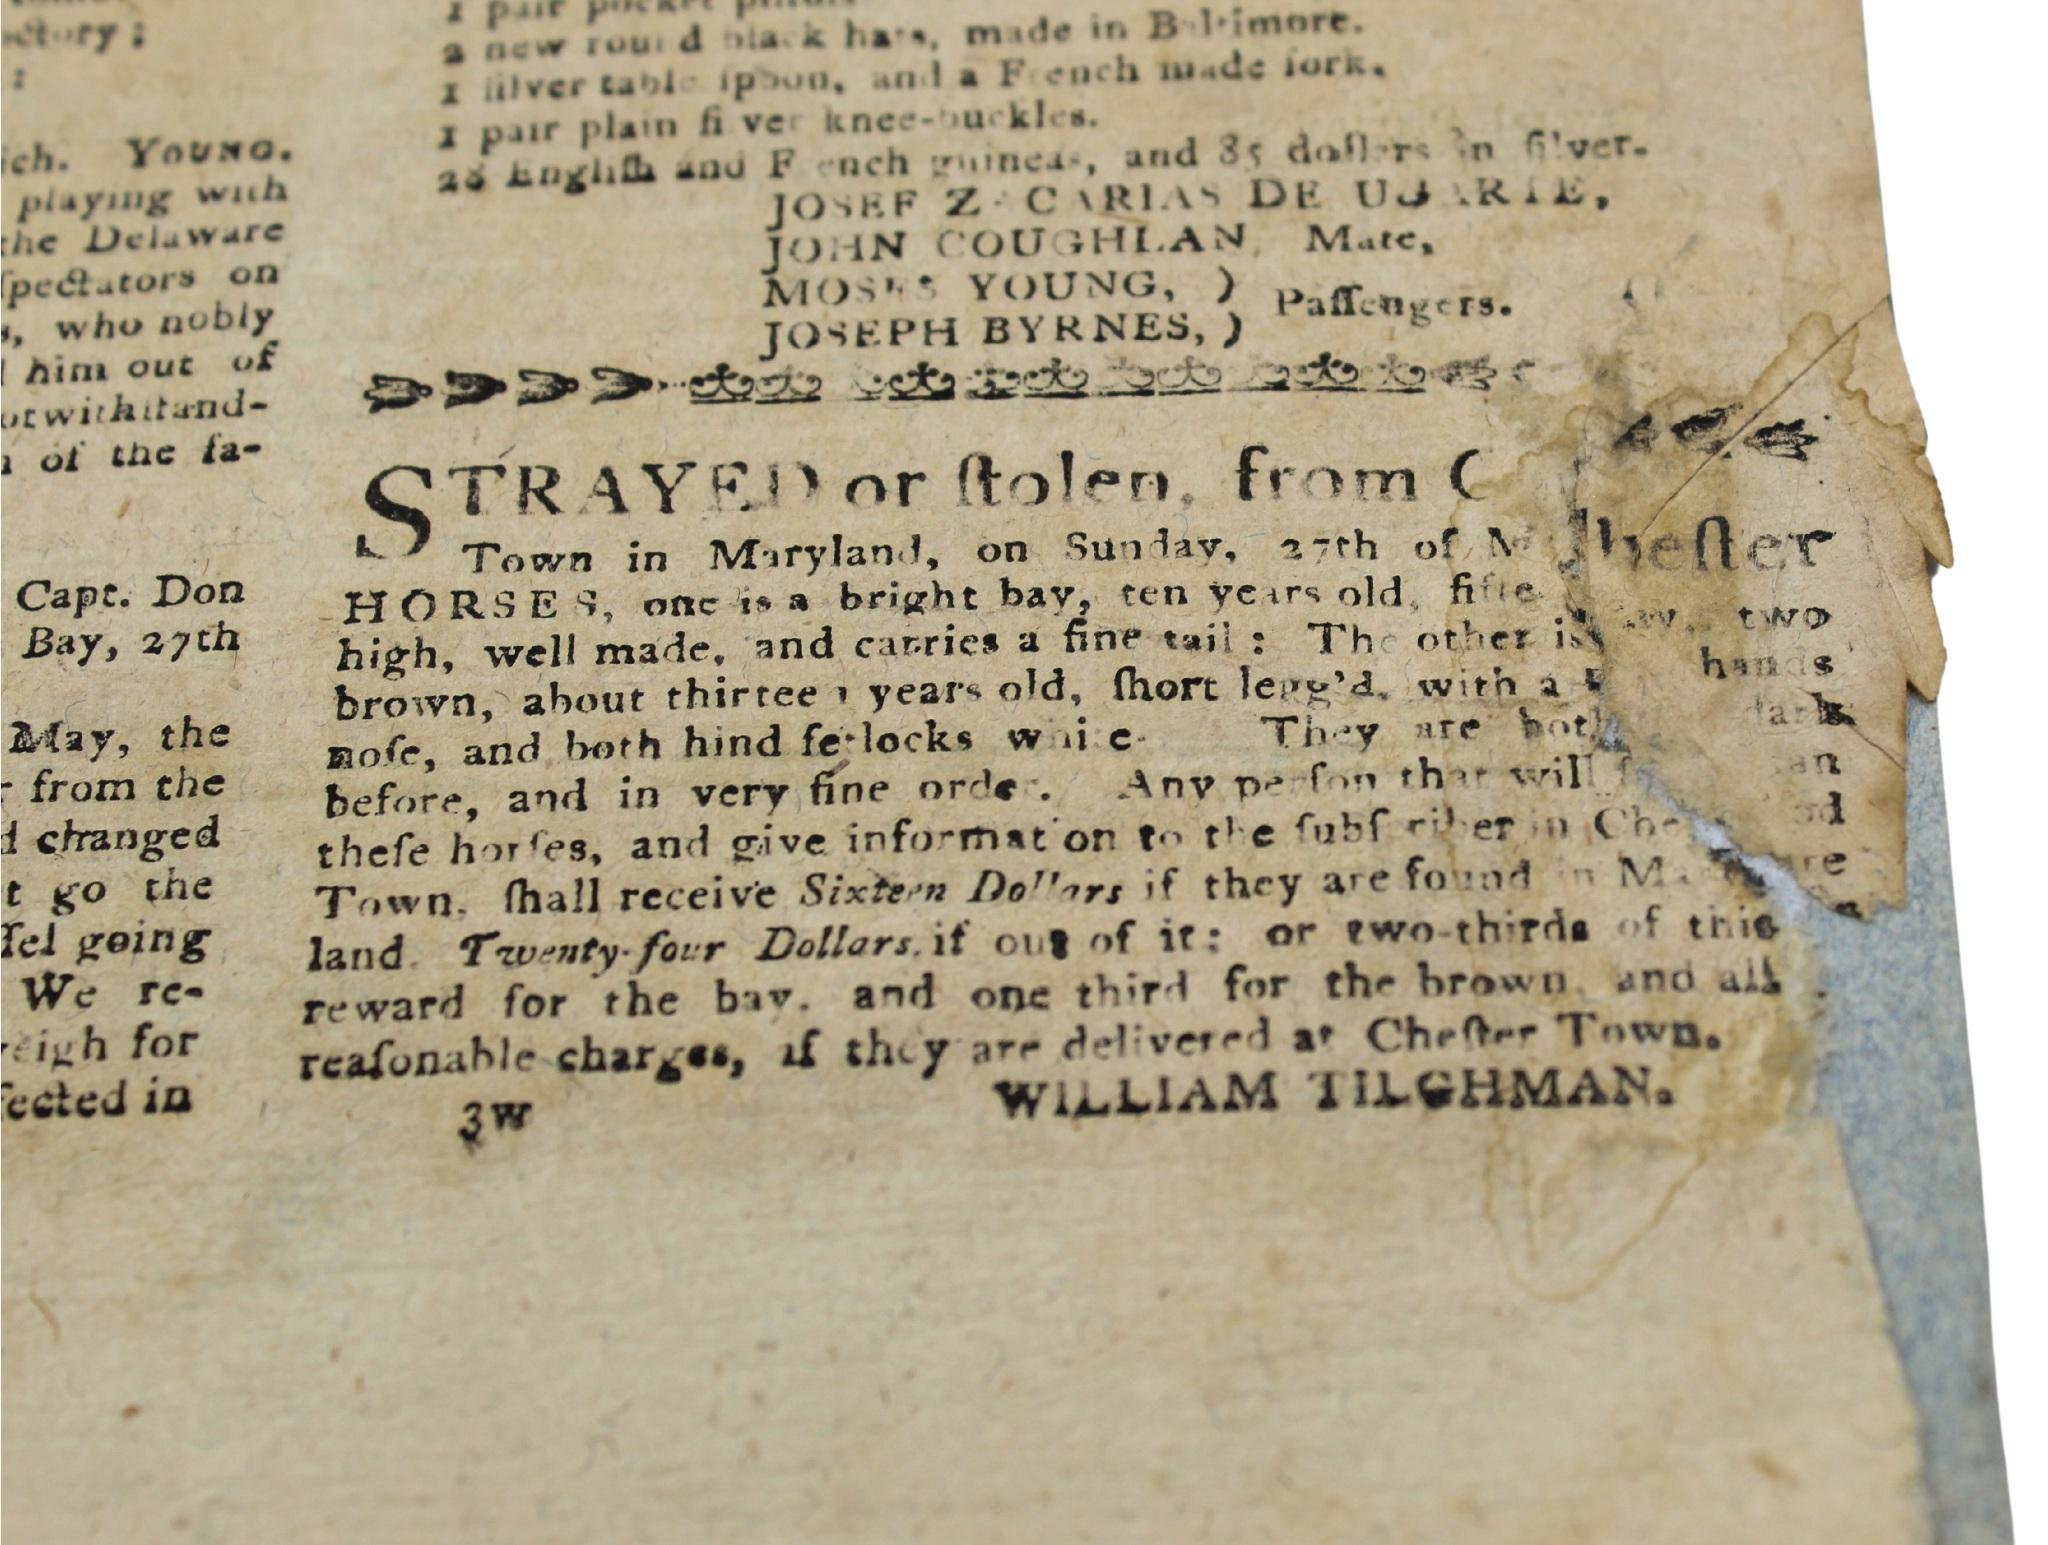 ctory;
:
ich. YOUNG.
playing with
the Delaware
ſpectators on
s, who nobly
him out of
otwithſtand-
n of the fa-
Capt. Don
Bay, 27th
May, the
r from the
d changed
t go the
ſſel going
We re-
eigh for
fected in
1 pair pocket piſtols
2 new round black hats, made in Baltimore.
1 ſilver table ſpoon, and a French made fork.
1 pair plain ſilver knee-buckles.
28 Engliſh and French guineas, and 85 dollars in ſilver.
JOSEF ZACARIAS DE UGARTE,
JOHN COUGHLAN, Mate,
MOSES YOUNG, )
JOSEPH BYRNES, ) Paſſengers.
STRAYED or ſtolen, from Cheſter
Town in Maryland, on Sunday, 27th of May, two
HORSES, one is a bright bay, ten years old, fifteen hands
high, well made, and carries a fine tail: The other is dark
brown, about thirteen years old, ſhort legg'd, with a tan
noſe, and both hind fetlocks white. They are both ſhod
before, and in very fine order. Any perſon that will
theſe horſes, and give information to the ſubſcriber in Cheſter
Town, ſhall receive Sixteen Dollars if they are found in Mary-
land. Twenty-four Dollars, if out of it; or two-thirds of this
reward for the bay, and one third for the brown, and all
reaſonable charges, if they are delivered at Cheſter Town.
3w WILLIAM TILGHMAN.